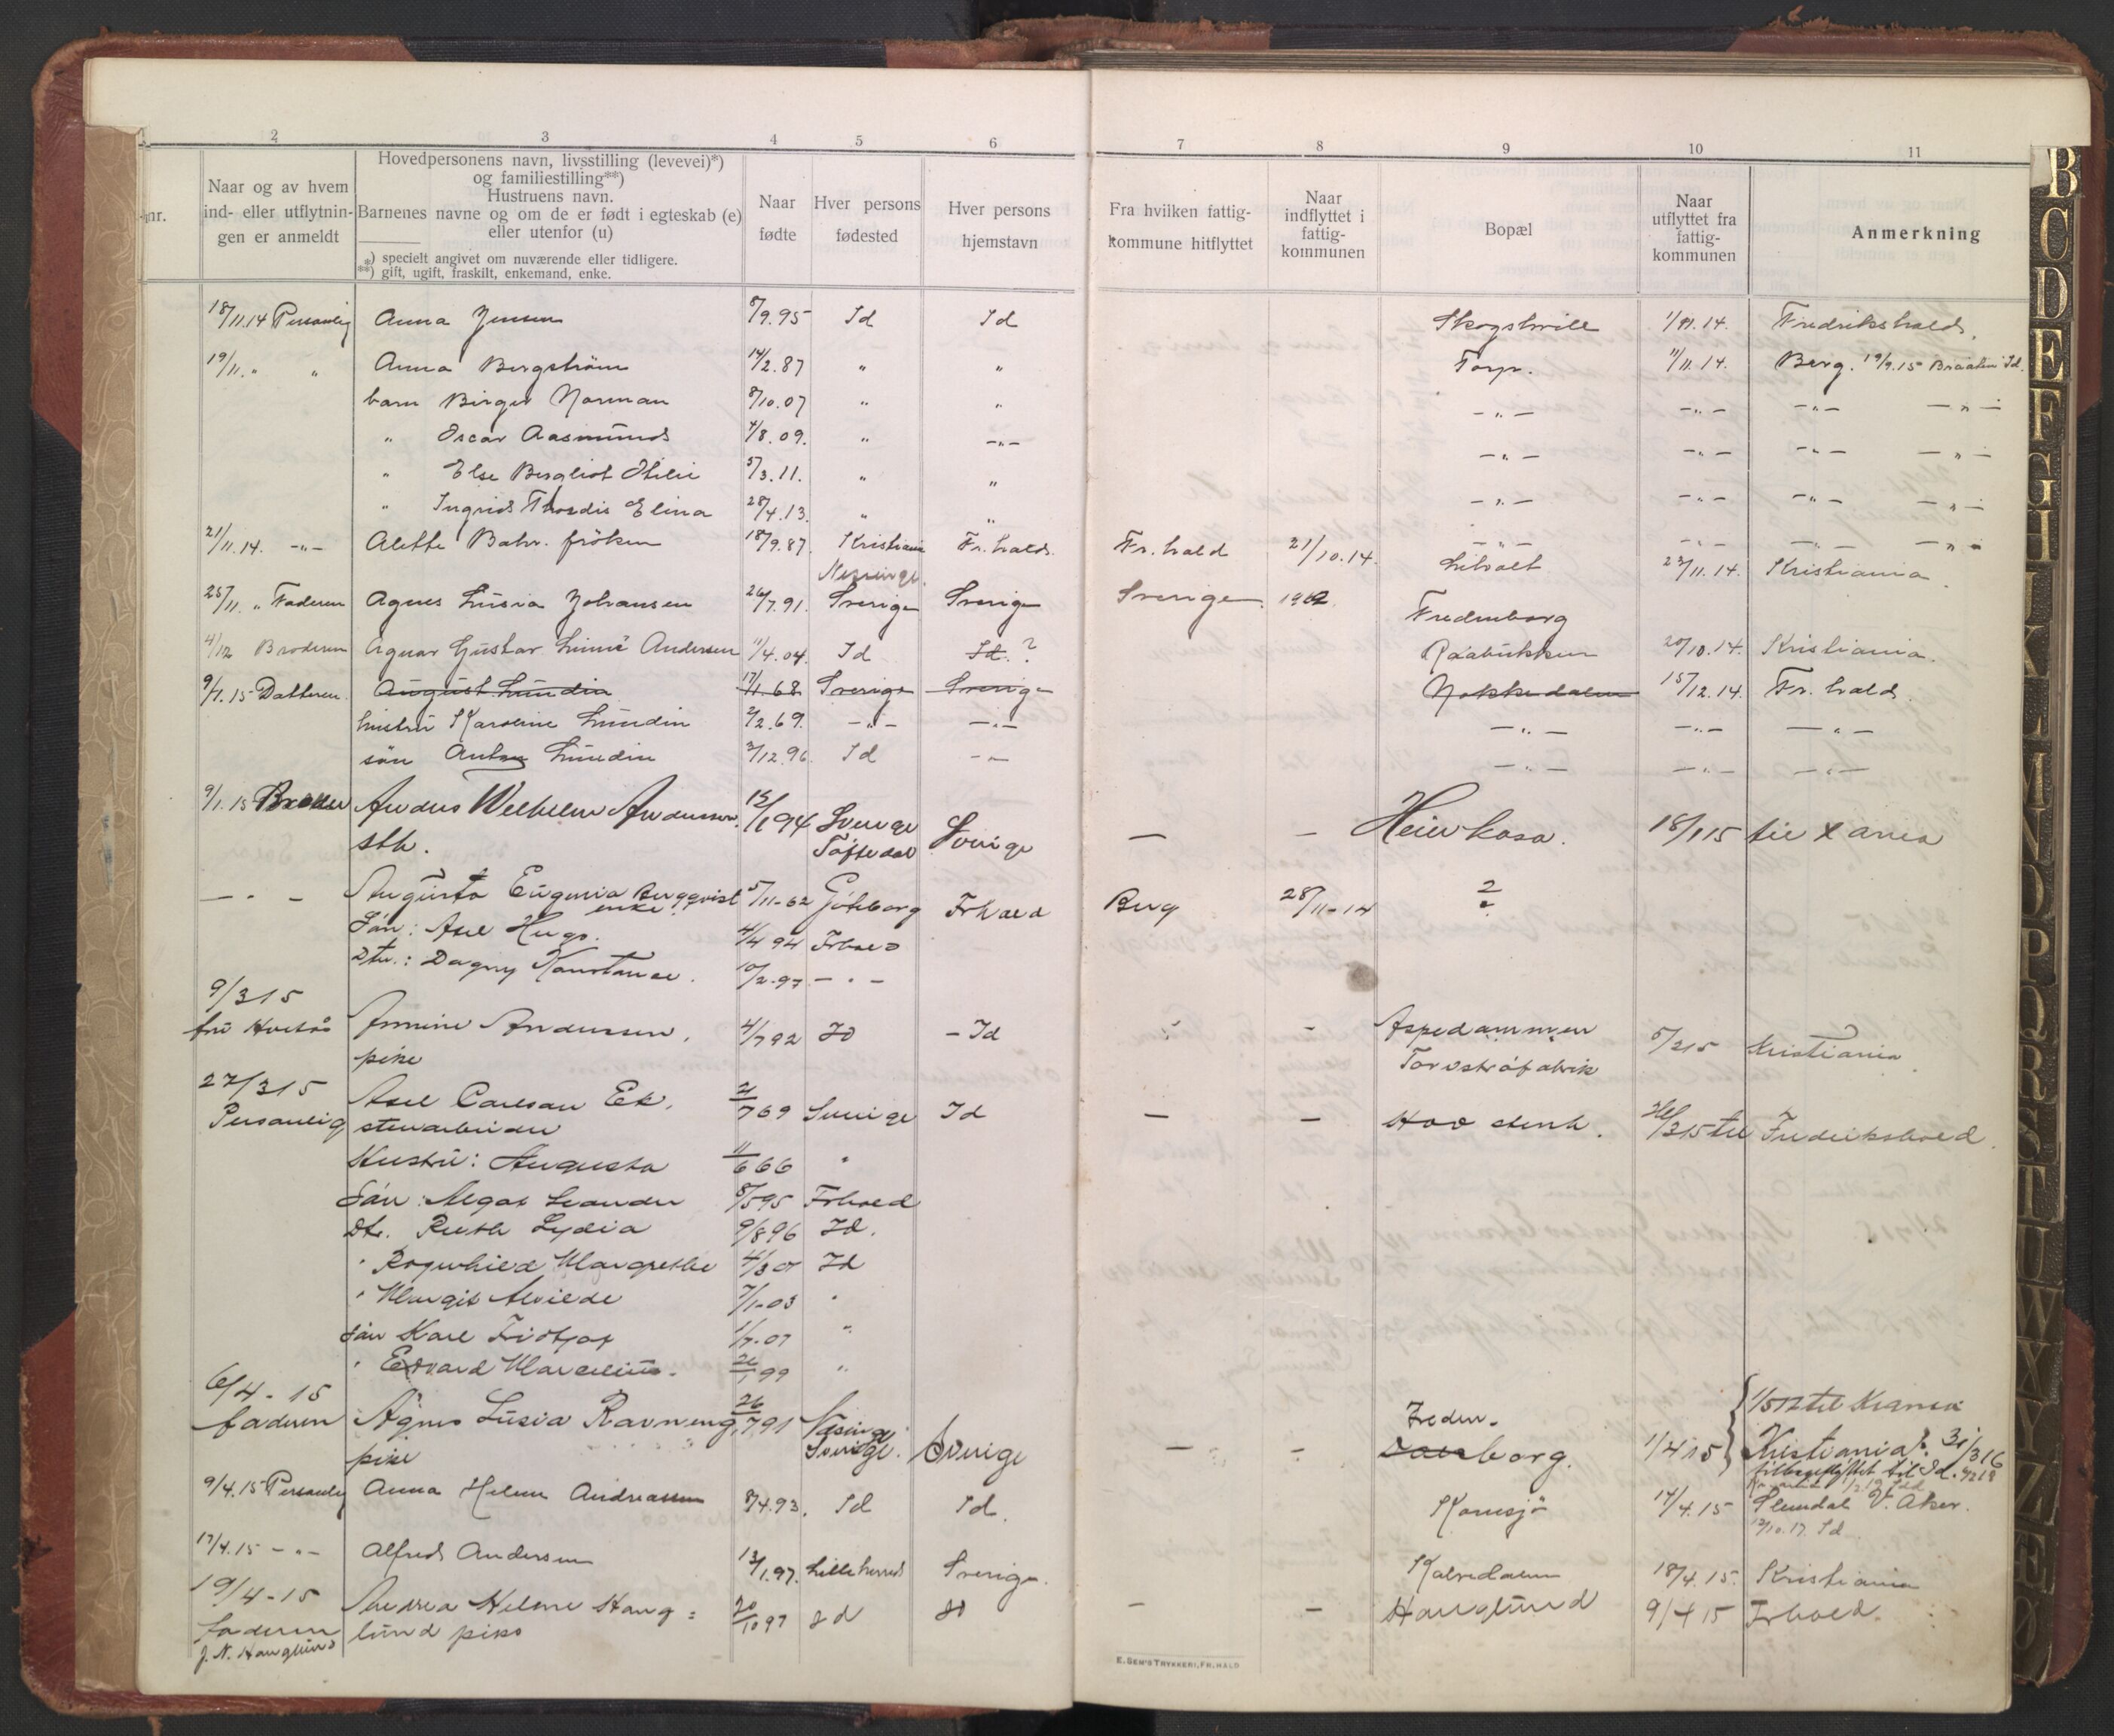 2 3 4 5 6 7 8 9 10 11
nr.
Naar og av hvem
ind- eller utflytnin-
gen er anmeldt
Hovedpersonens navn, livsstilling (levevei)*)
og familiestilling**)
Hustruens navn.
Barnenes navne og om de er født i egteskab (e)
eller utenfor (u)
*) specielt angivet om nuværende eller tidligere.
**) gift, ugift, fraskilt, enkemand, enke.
Naar
fødte
Hver persons
fødested
Hver persons
hjemstavn
Fra hvilken fattig-
kommune hitflyttet
Naar
indflyttet i
fattig-
kommunen
Bopæl
Naar
utflyttet fra
fattig-
kommunen
Anmerkning
18/11.14 Personlig Anna Jensen 8/9.95 Id Id Skogshvile 1/11.14. Fredrikshald.
19/11. " " Anna Bergström 14/2.87 " " Torp. 11/11.14. Berg. 19/9.15 Braaten Id.
barn Birger Norman 8/10.07 " " -"- -"- -"- -"-
" Oscar Aasmund 4/8.09. " -"- -"- -"- -"- -"-
" Else Bergliot Otilie 5/3.11. " " -"- -"- -"- -"-
" Ingrid Thordis Elina 28/4.13. " " -"- -"- -"- -"-
21/11.14. -"- Alette Bahr. fröken 18/9.87. Kristiania Fr.hald. Fr.hald 21/10.14. 23/11.14. Kristiania.
25/11. " Faderen Agnes Lusia Johansen 26/7.91. Sverige Sverige Sverige 1912 Fredenborg
4/12 Broderen Agnar Gustav Linné Andersen 11/4.04. Id Id. ? Raabukken 20/10.14. Kristiania.
9/1.15 Datteren. August Lundin 17/1.68 Sverige Sverige Nokkedalen 15/12.14. Fr.hald.
hustru Karoline Lundin 2/2.69. -"- -"- -"- -"- -"-
sön Anton Lundin 3/12.96 Id -"- -"- -"- -"-
9/1.15 Broder Anders Wilhelm Andersen 15/1 94 Sverige Sverige — — Heierkasa. 18/1 15 til Xania
sth. Töftedal
- " - Augusta Eugenia Bergqvist 5/11-62 Göteborg Frhald Berg 28/11-14 ?
enke
Sön: Axel Hugo. 4/4 94 Frhald
Dtr.: Dagny Konstance. 10/2-97 - " -
9/3 15
fru Hvitås Annine Andersen, 4/7 92 Id - Id - Aspedammen 5/2 15 Kristiania
pike Torvströfabrik
27/3 15
Personlig Axel Carlsen Ek, 21/7 69 Sverige Id — — Hov stenh. 26/3 15 til Fredrikshald.
stenarbeider
Hustru: Augusta 11/6 66 "
Sön: Algot Leander 8/5 95 Frhald
Dtr. Ruth Lydia 9/8 96 Id.
" Ragnhild Margrethe 4/3 01 Id
" Margit Alvilde 7/1-03 "
Sön Karl Fridtjof 1/7-07 "
" Edvard Marcelius. 26/1 99 "
6/4-15
faderen Agnes Lusia Ravneng, 26/7 91 Næsinge Sverige — - Freden-
pike Sverige. borg. 1/4 15 Kristiania 31/3 16
1/5 17 til Krania
tilbageflyttet til Id.
9/4.15 Personlig Anna Helene Andreassen 8/4.93. Id Id. Kornsjö 14/4.15 Slemdal V. Aker.
12/10.17. Id
17/4.15 -"- Alfred Andersen 13/1.97. Lilleherred Sverige. Kalvedalen 18/4.15. Kristiania
19/4-15
faderen Andrea Helene Haug= 20/10 97 Id Id — — Hauglund 9/4 15 Frhald.
J. N. Hauglund lund pike
E. SEM'S TRYKKERI, FR.HALD
B
C
D
E
F
G
H
I
J
K
L
M
N
O
P
Q
R
S
T
U
W
X
Y
Z
Æ
Ø